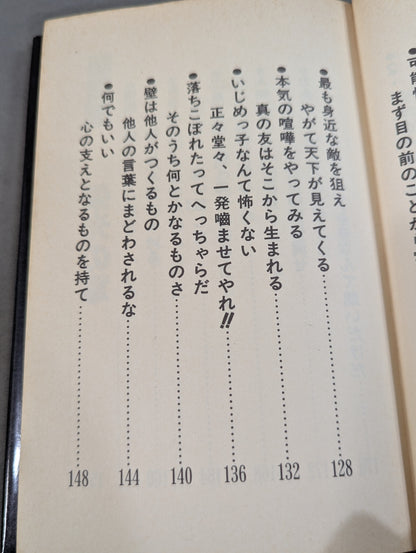 可能
まず目の前のことか
●最も身近な敵を狙え
やがて天下が見えてくる……………128
●本気の喧嘩をやってみる
真の友はそこから生まれる……………132
●いじめっ子なんて怖くない
正々堂々、一発嚙ませてやれ!!……………136
●落ちこぼれたってへっちゃらだ
そのうち何とかなるものさ……………140
●壁は他人がつくるもの
他人の言葉にまどわされるな……………144
●何でもいい
心の支えとなるものを持て……………148